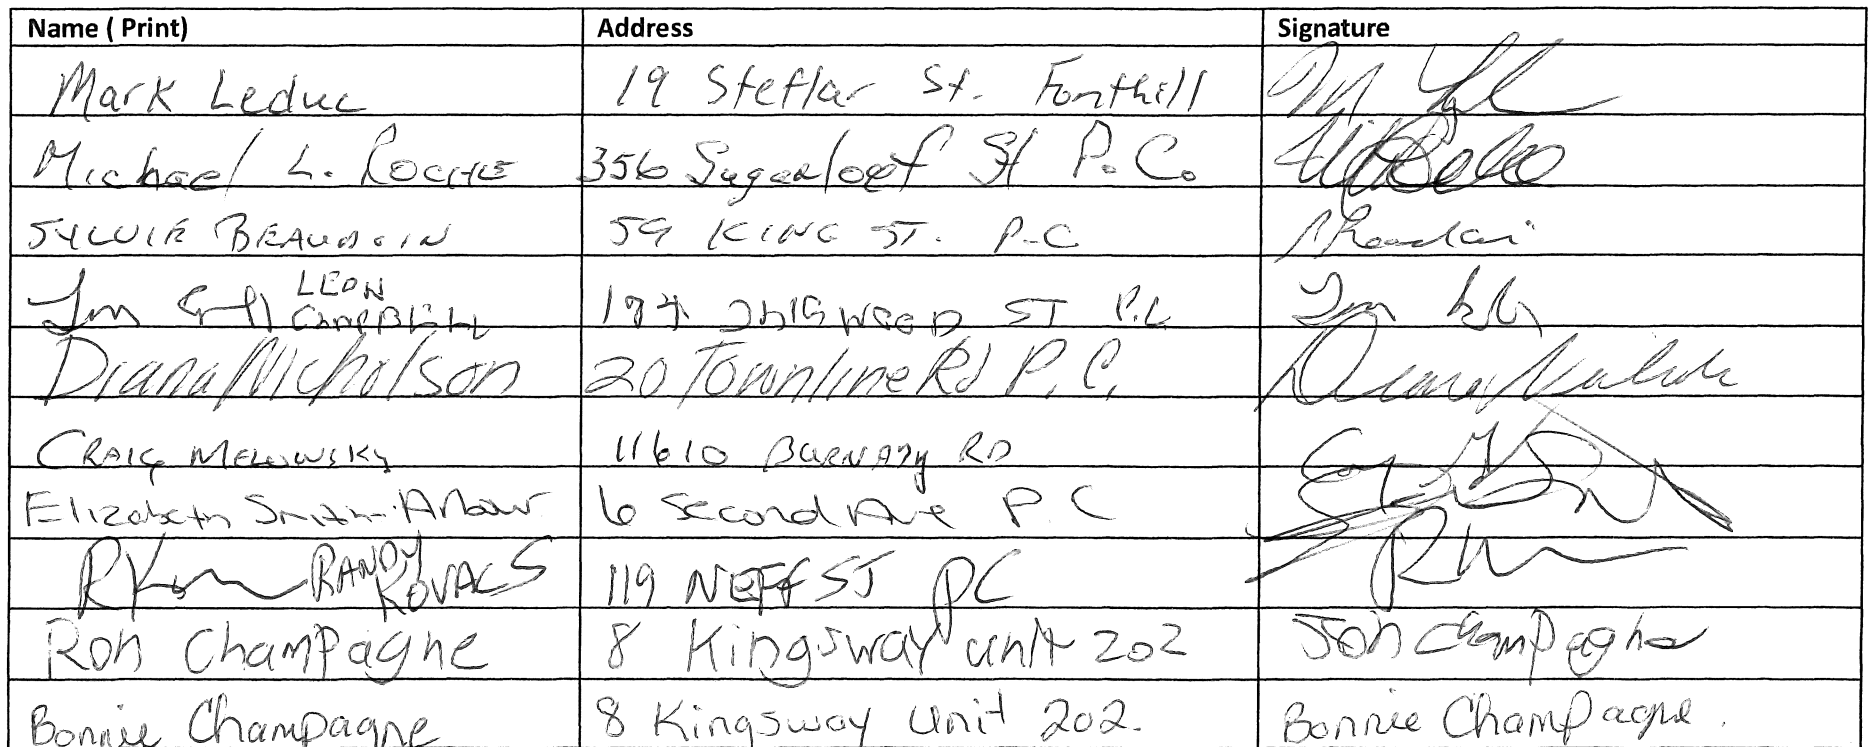 Name ( Print) Address Signature
Mark Leduc 19 Steflar St. Fonthill
Michael L. Roche 356 Sugarloaf St P.C.
SYLVIE BEAUDOIN 59 KING ST. P.C
LEON
CAMPBELL 174 ST P.C
Diana Nicholson 20 Townline Rd P.C. Diana
CRAIG MELOWSKY 11610 BURNABY RD
Elizabeth Smith-Arbour 6 Second Ave P.C
RANDY
KOVACS 119 NEFF ST PC
Ron Champagne 8 Kingsway unit 202 Ron Champagne
Bonnie Champagne 8 Kingsway Unit 202. Bonnie Champagne.